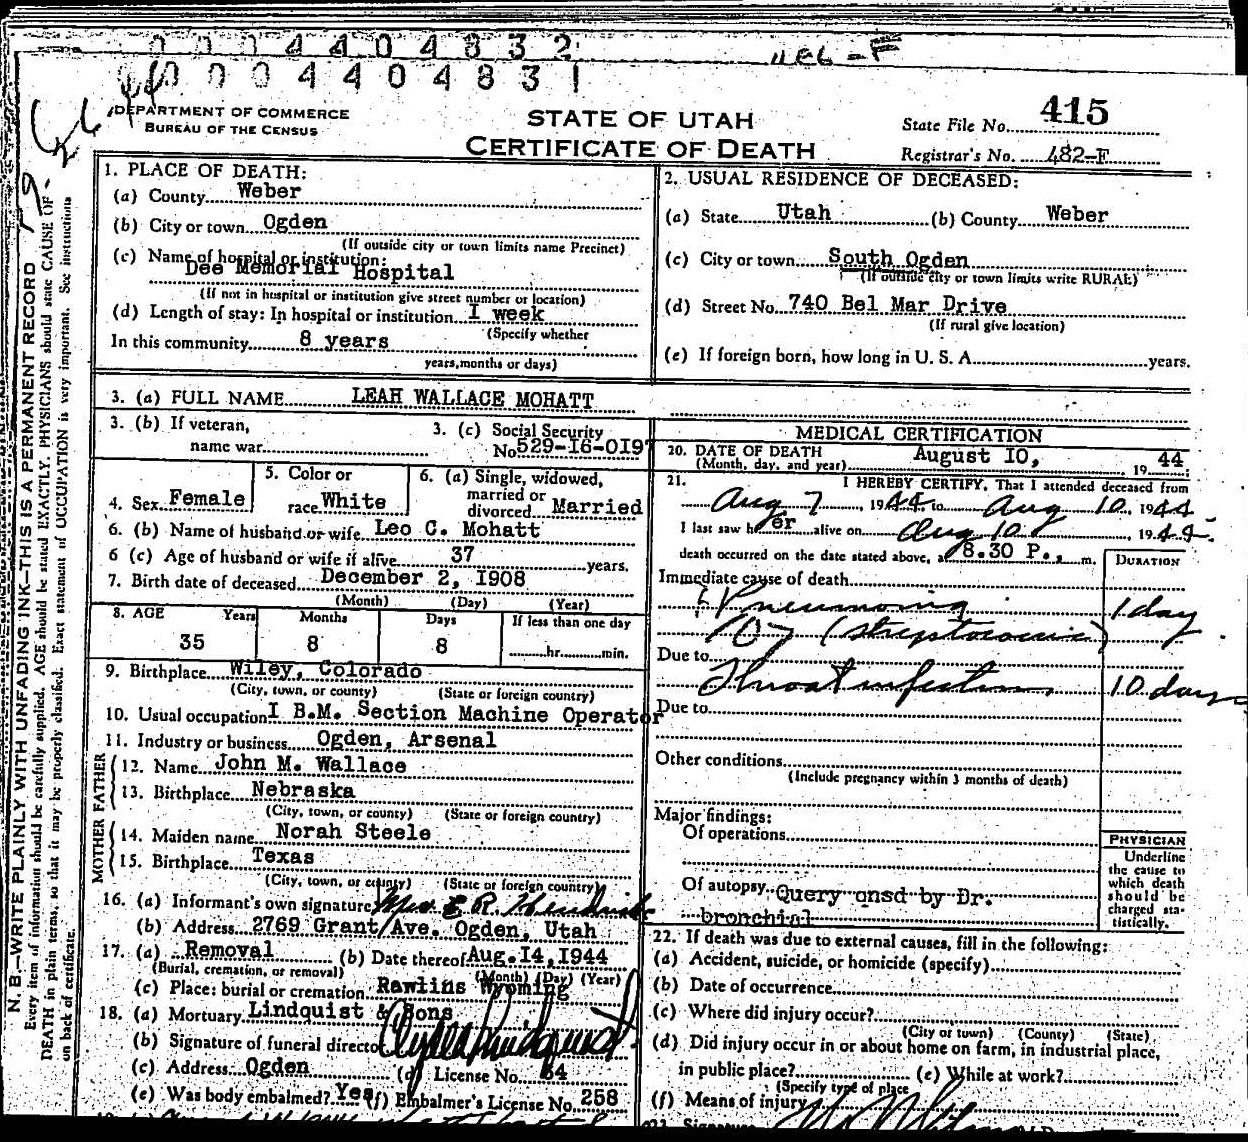 0 0 0 4 4 0 4 8 3 2
0 0 0 4 4 0 4 8 3 1
DEPARTMENT OF COMMERCE
BUREAU OF THE CENSUS
STATE OF UTAH
CERTIFICATE OF DEATH
State File No. 415
Registrar's No. 482-F
N. B.—WRITE PLAINLY WITH UNFADING INK—THIS IS A PERMANENT RECORD
Every item of information should be carefully supplied. AGE should be stated EXACTLY. PHYSICIANS should state CAUSE OF
DEATH in plain terms, so that it may be properly classified. Exact statement of OCCUPATION is very important. See instructions
on back of certificate.
1. PLACE OF DEATH:
(a) County Weber
(b) City or town Ogden
(If outside city or town limits name Precinct)
(c) Name of hospital or institution:
Dee Memorial Hospital
(If not in hospital or institution give street number or location)
(d) Length of stay: In hospital or institution I week
(Specify whether
In this community 8 years
years, months or days)
2. USUAL RESIDENCE OF DECEASED:
(a) State Utah (b) County Weber
(c) City or town South Ogden
(If outside city or town limits write RURAL)
(d) Street No. 740 Bel Mar Drive
(If rural give location)
(e) If foreign born, how long in U. S. A. years.
3. (a) FULL NAME LEAH WALLACE MOHATT
3. (b) If veteran,
name war
3. (c) Social Security
No. 529-16-0197
4. Sex Female
5. Color or
race White
6. (a) Single, widowed,
married or
divorced Married
6. (b) Name of husband or wife Leo C. Mohatt
6 (c) Age of husband or wife if alive 37 years.
7. Birth date of deceased December 2, I908
(Month) (Day) (Year)
8. AGE Years Months Days If less than one day
35 8 8 hr. min.
9. Birthplace Wiley, Colorado
(City, town, or county) (State or foreign country)
10. Usual occupation I B.M. Section Machine Operator
11. Industry or business Ogden, Arsenal
FATHER
12. Name John M. Wallace
13. Birthplace Nebraska
(City, town, or county) (State or foreign country)
MOTHER
14. Maiden name Norah Steele
15. Birthplace Texas
(City, town, or county) (State or foreign country)
16. (a) Informant's own signature Mrs E R.
(b) Address 2769 Grant Ave. Ogden, Utah
17. (a) Removal (b) Date thereof Aug. I4, I944
(Burial, cremation, or removal) (Month) (Day) (Year)
(c) Place: burial or cremation Rawlins Wyoming
18. (a) Mortuary Lindquist & Sons
(b) Signature of funeral director
(c) Address Ogden (d) License No. 64
(e) Was body embalmed? Yes (f) Embalmer's License No. 258
MEDICAL CERTIFICATION
20. DATE OF DEATH
(Month, day, and year) August IO, 19 44
21. I HEREBY CERTIFY, That I attended deceased from
Aug 7, 1944 to Aug 10, 1944
I last saw her alive on Aug 10, 1944.
death occurred on the date stated above, a 8.30 P., m.
DURATION
Immediate cause of death
Pneumonia 1 day
107 (Streptococcic)
Due to
Throat infection 10 days
Due to
Other conditions
(Include pregnancy within 3 months of death)
Major findings:
Of operations
Of autopsy Query ansd by Dr.
bronchial
PHYSICIAN
Underline
the cause to
which death
should be
charged sta-
tistically.
22. If death was due to external causes, fill in the following:
(a) Accident, suicide, or homicide (specify)
(b) Date of occurrence
(c) Where did injury occur?
(City or town) (County) (State)
(d) Did injury occur in or about home on farm, in industrial place,
in public place? (e) While at work?
(Specify type of place
(f) Means of injury